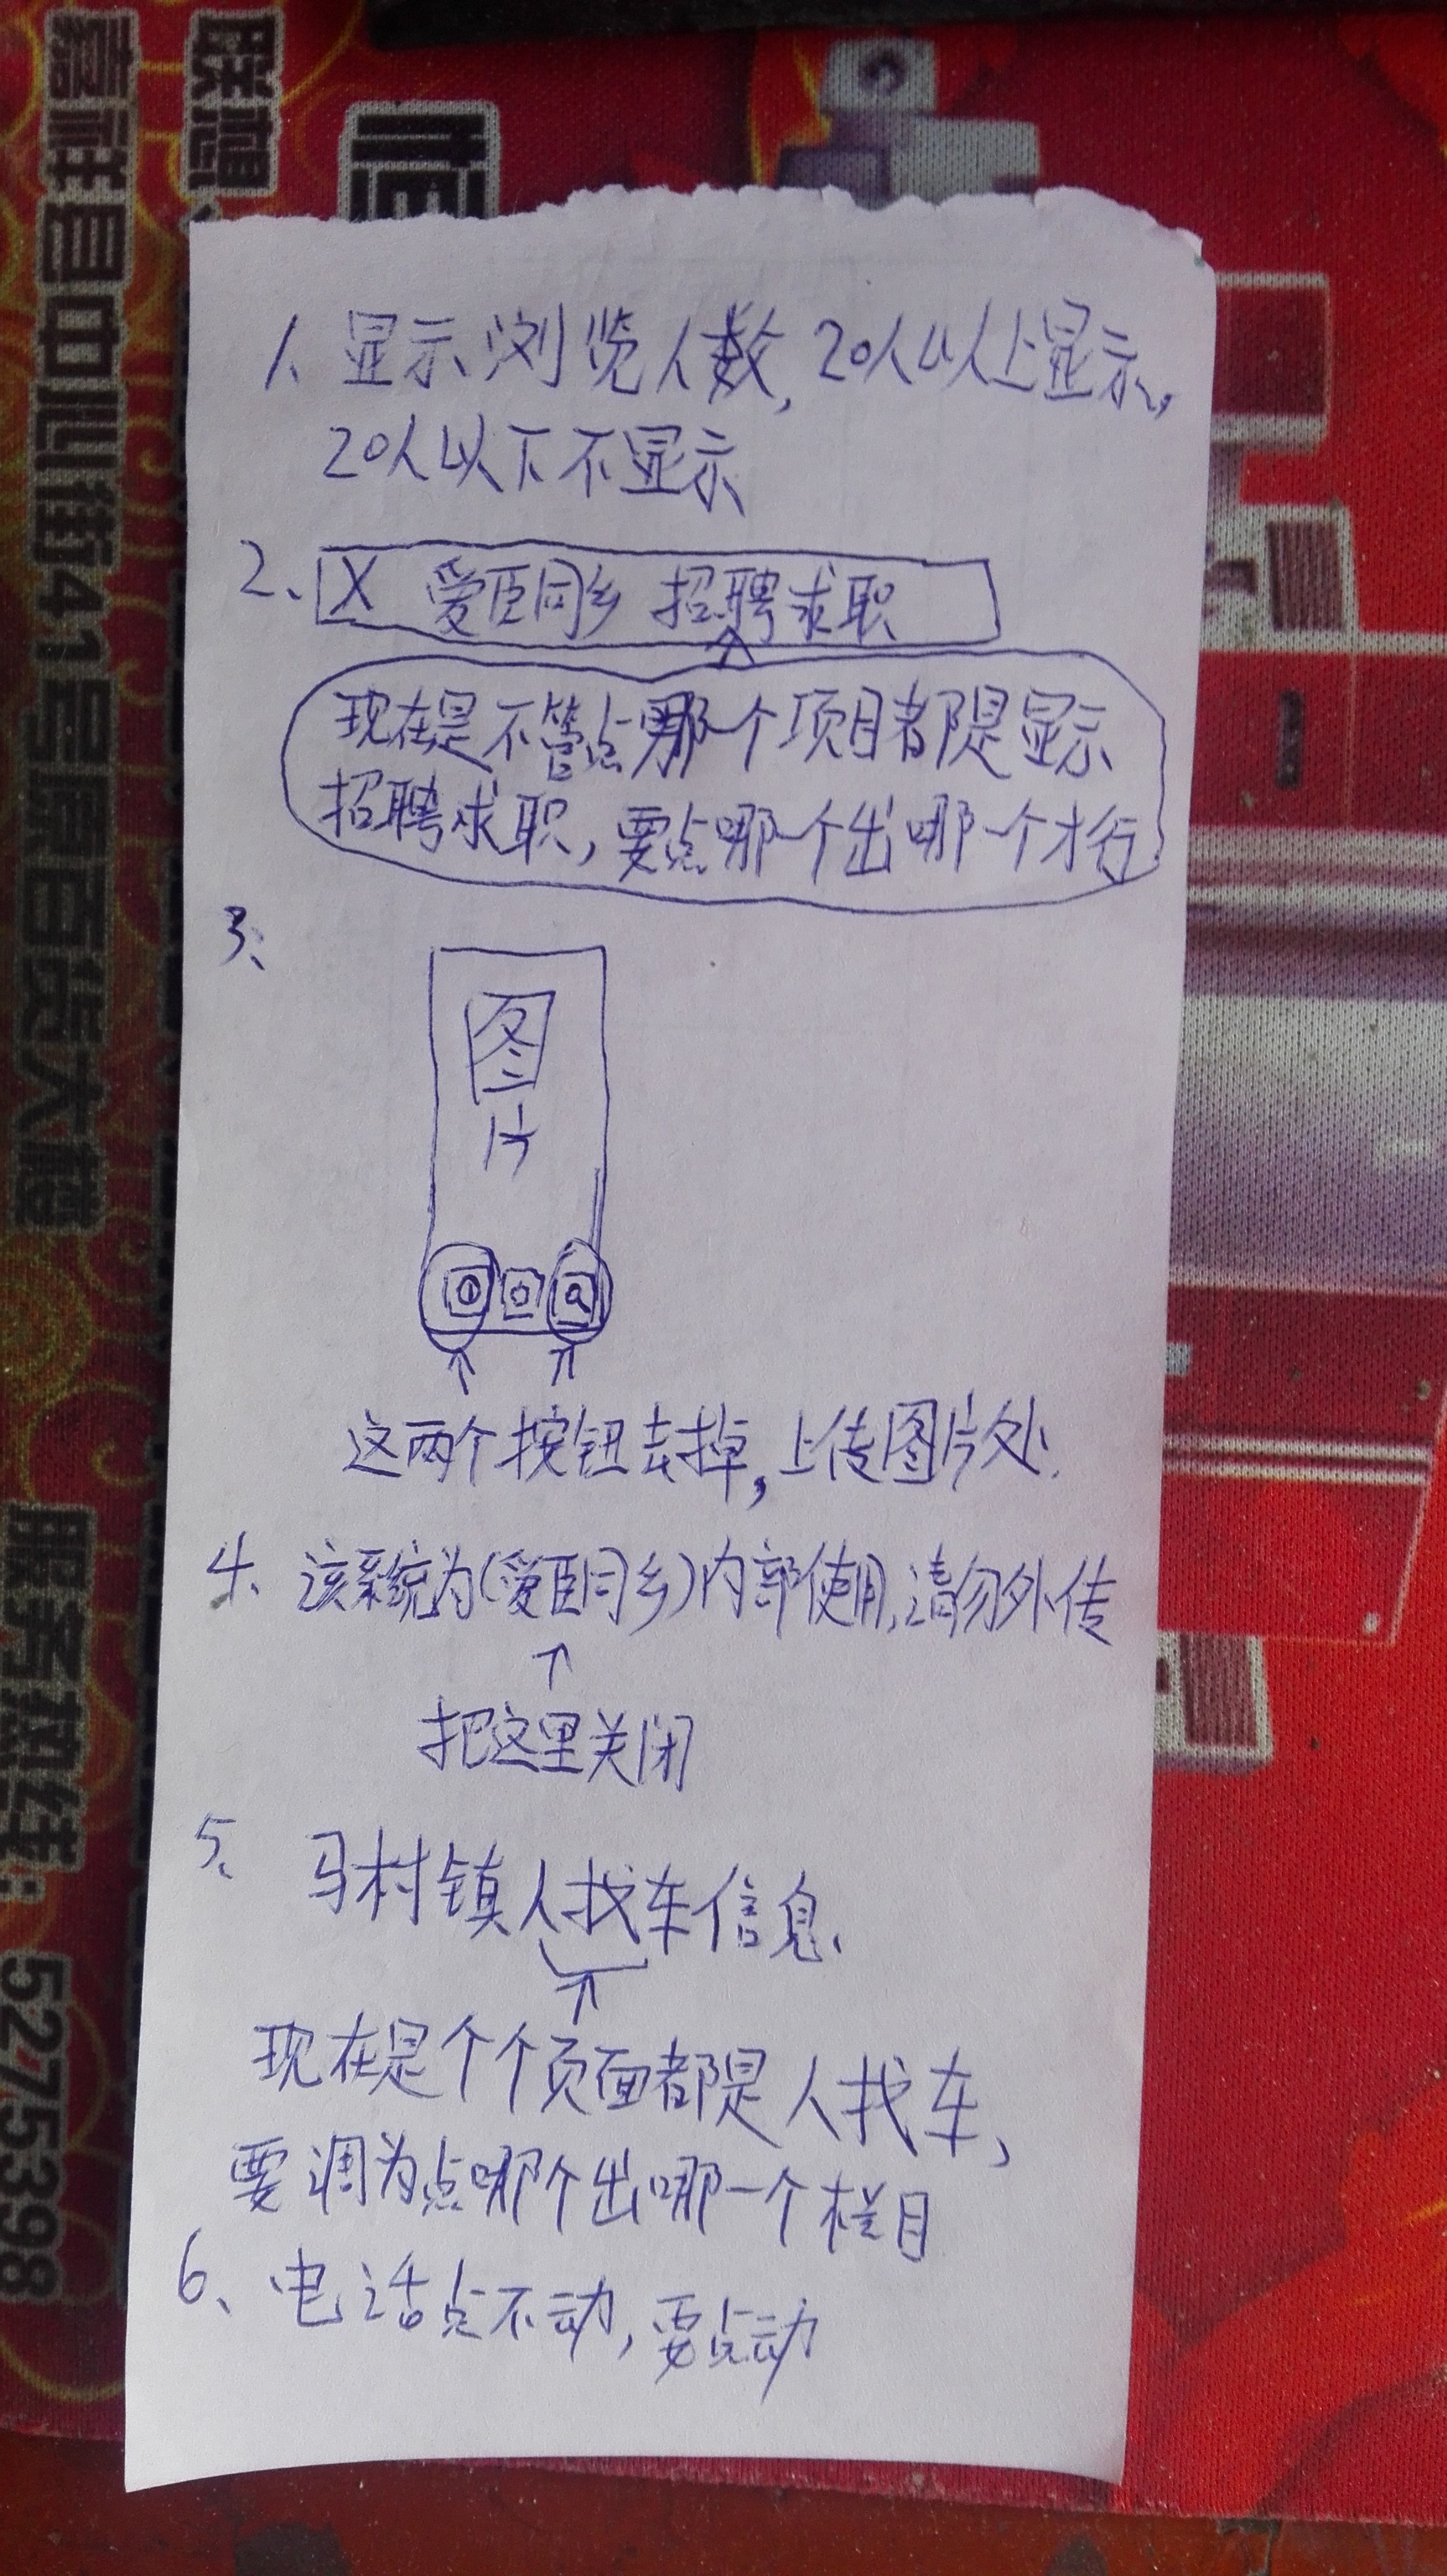 1、显示浏览人数,20人以上显示,
20人以下不显示
2、X 爱臣同乡 招聘求职
现在是不管点哪一个项目都是显示
招聘求职,要点哪一个出哪一个才行
3、
图
片
这两个按钮去掉,上传图片处.
4、该系统为(爱臣同乡)内部使用,请勿外传
把这里关闭
5、马村镇人找车信息、
现在是个个页面都是人找车,
要调为点哪个出哪一个栏目
6、电话点不动,要点动
联想
嘉祥县中心街41号原百货大楼
服务热线:5275398